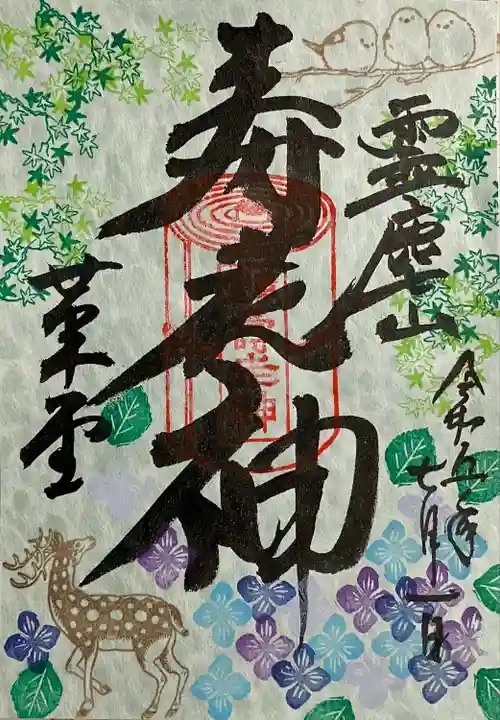 霊麀山
寿老神
革堂
令和五年
七月十一日